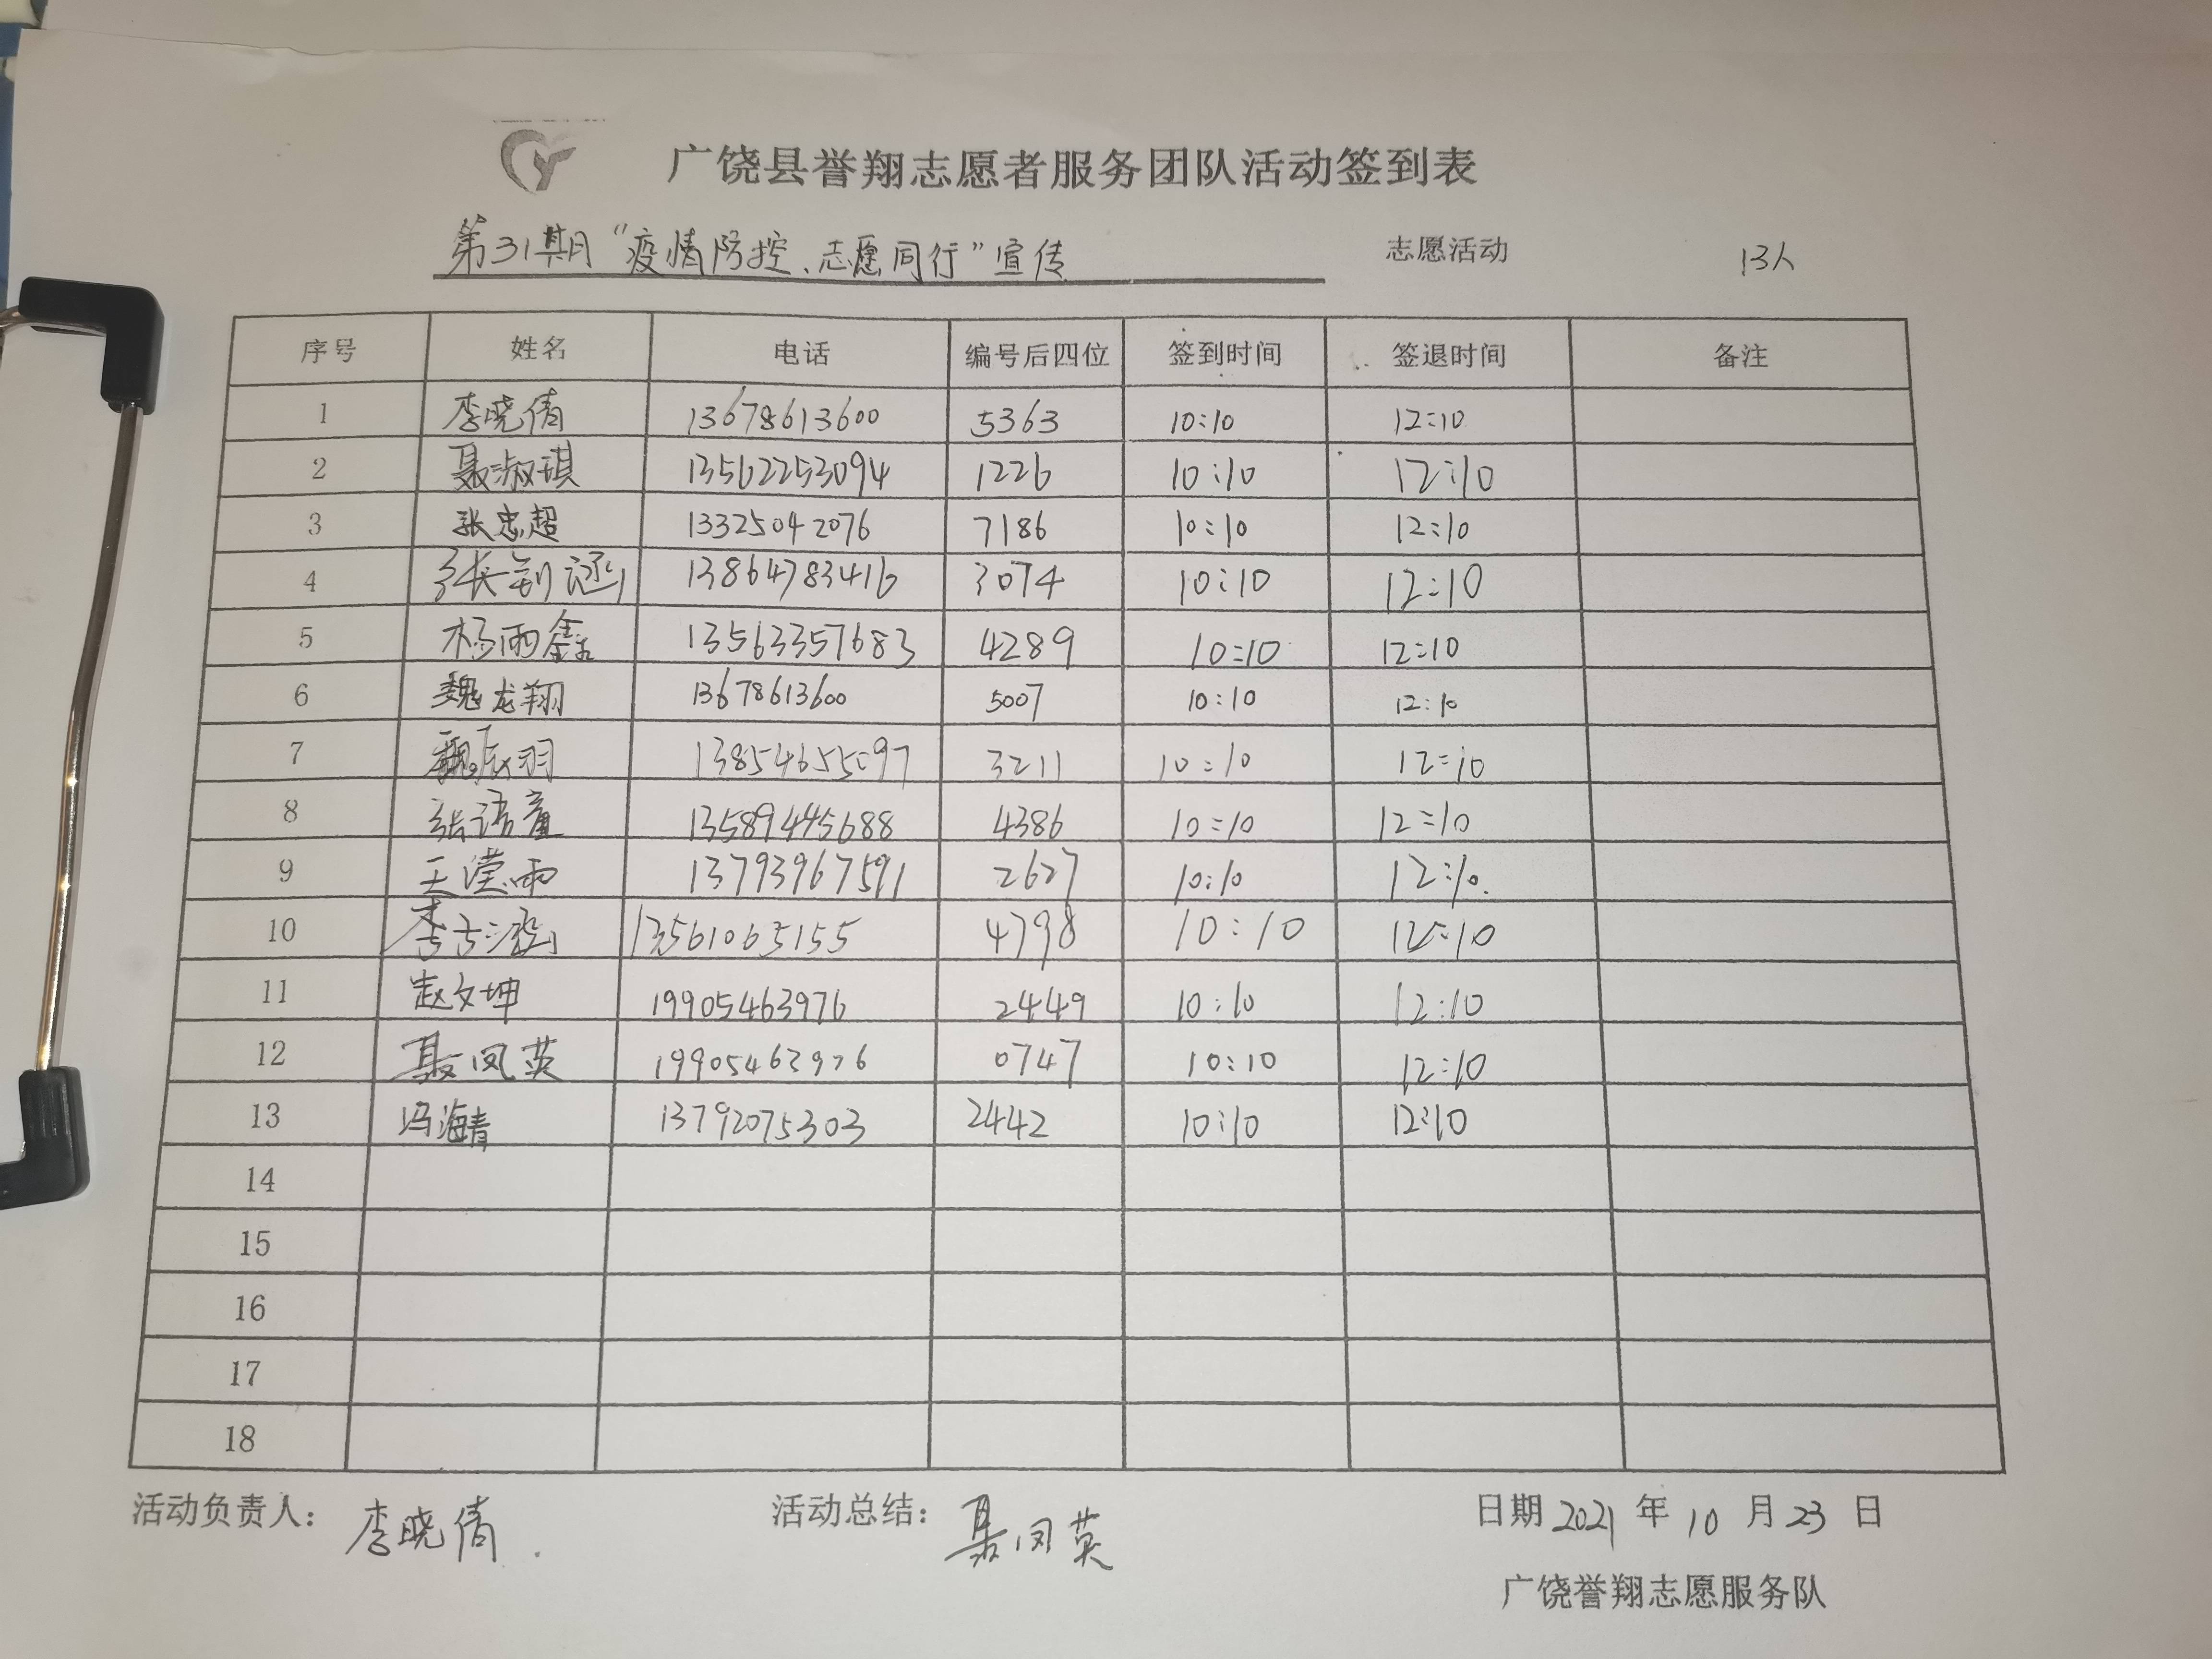 广饶县誉翔志愿者服务团队活动签到表
第31期“疫情防控、志愿同行”宣传 志愿活动 13人
序号 姓名 电话 编号后四位 签到时间 签退时间 备注
1 李晓倩 13678613600 5363 10:10 12:10
2 聂淑琪 13562253094 1226 10:10 12:10
3 张忠超 13325042076 7186 10:10 12:10
4 张 涵 13864783416 3074 10:10 12:10
5 杨雨鑫 13563357683 4289 10:10 12:10
6 魏龙翔 13678613600 5007 10:10 12:10
7 魏辰羽 3211 10:10 12:10
8 张语童 13589445688 4386 10:10 12:10
9 王滢雨 13793967591 2627 10:10 12:10
10 李 涵 13561065155 4798 10:10 12:10
11 赵文坤 19905463976 2449 10:10 12:10
12 聂凤英 19905463976 0747 10:10 12:10
13 冯海青 13792075303 2442 10:10 12:10
14
15
16
17
18
活动负责人：李晓倩 活动总结：聂凤英 日期2021年10月23日
广饶誉翔志愿服务队